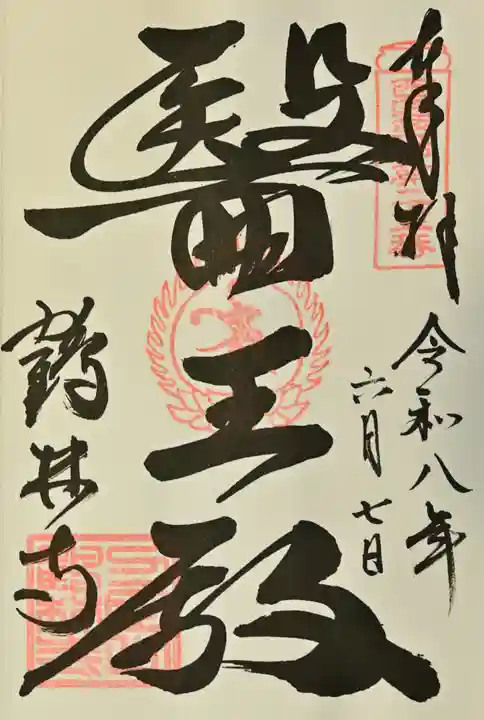 奉拝
令和八年
六月七日
醫王殿
鶴林寺